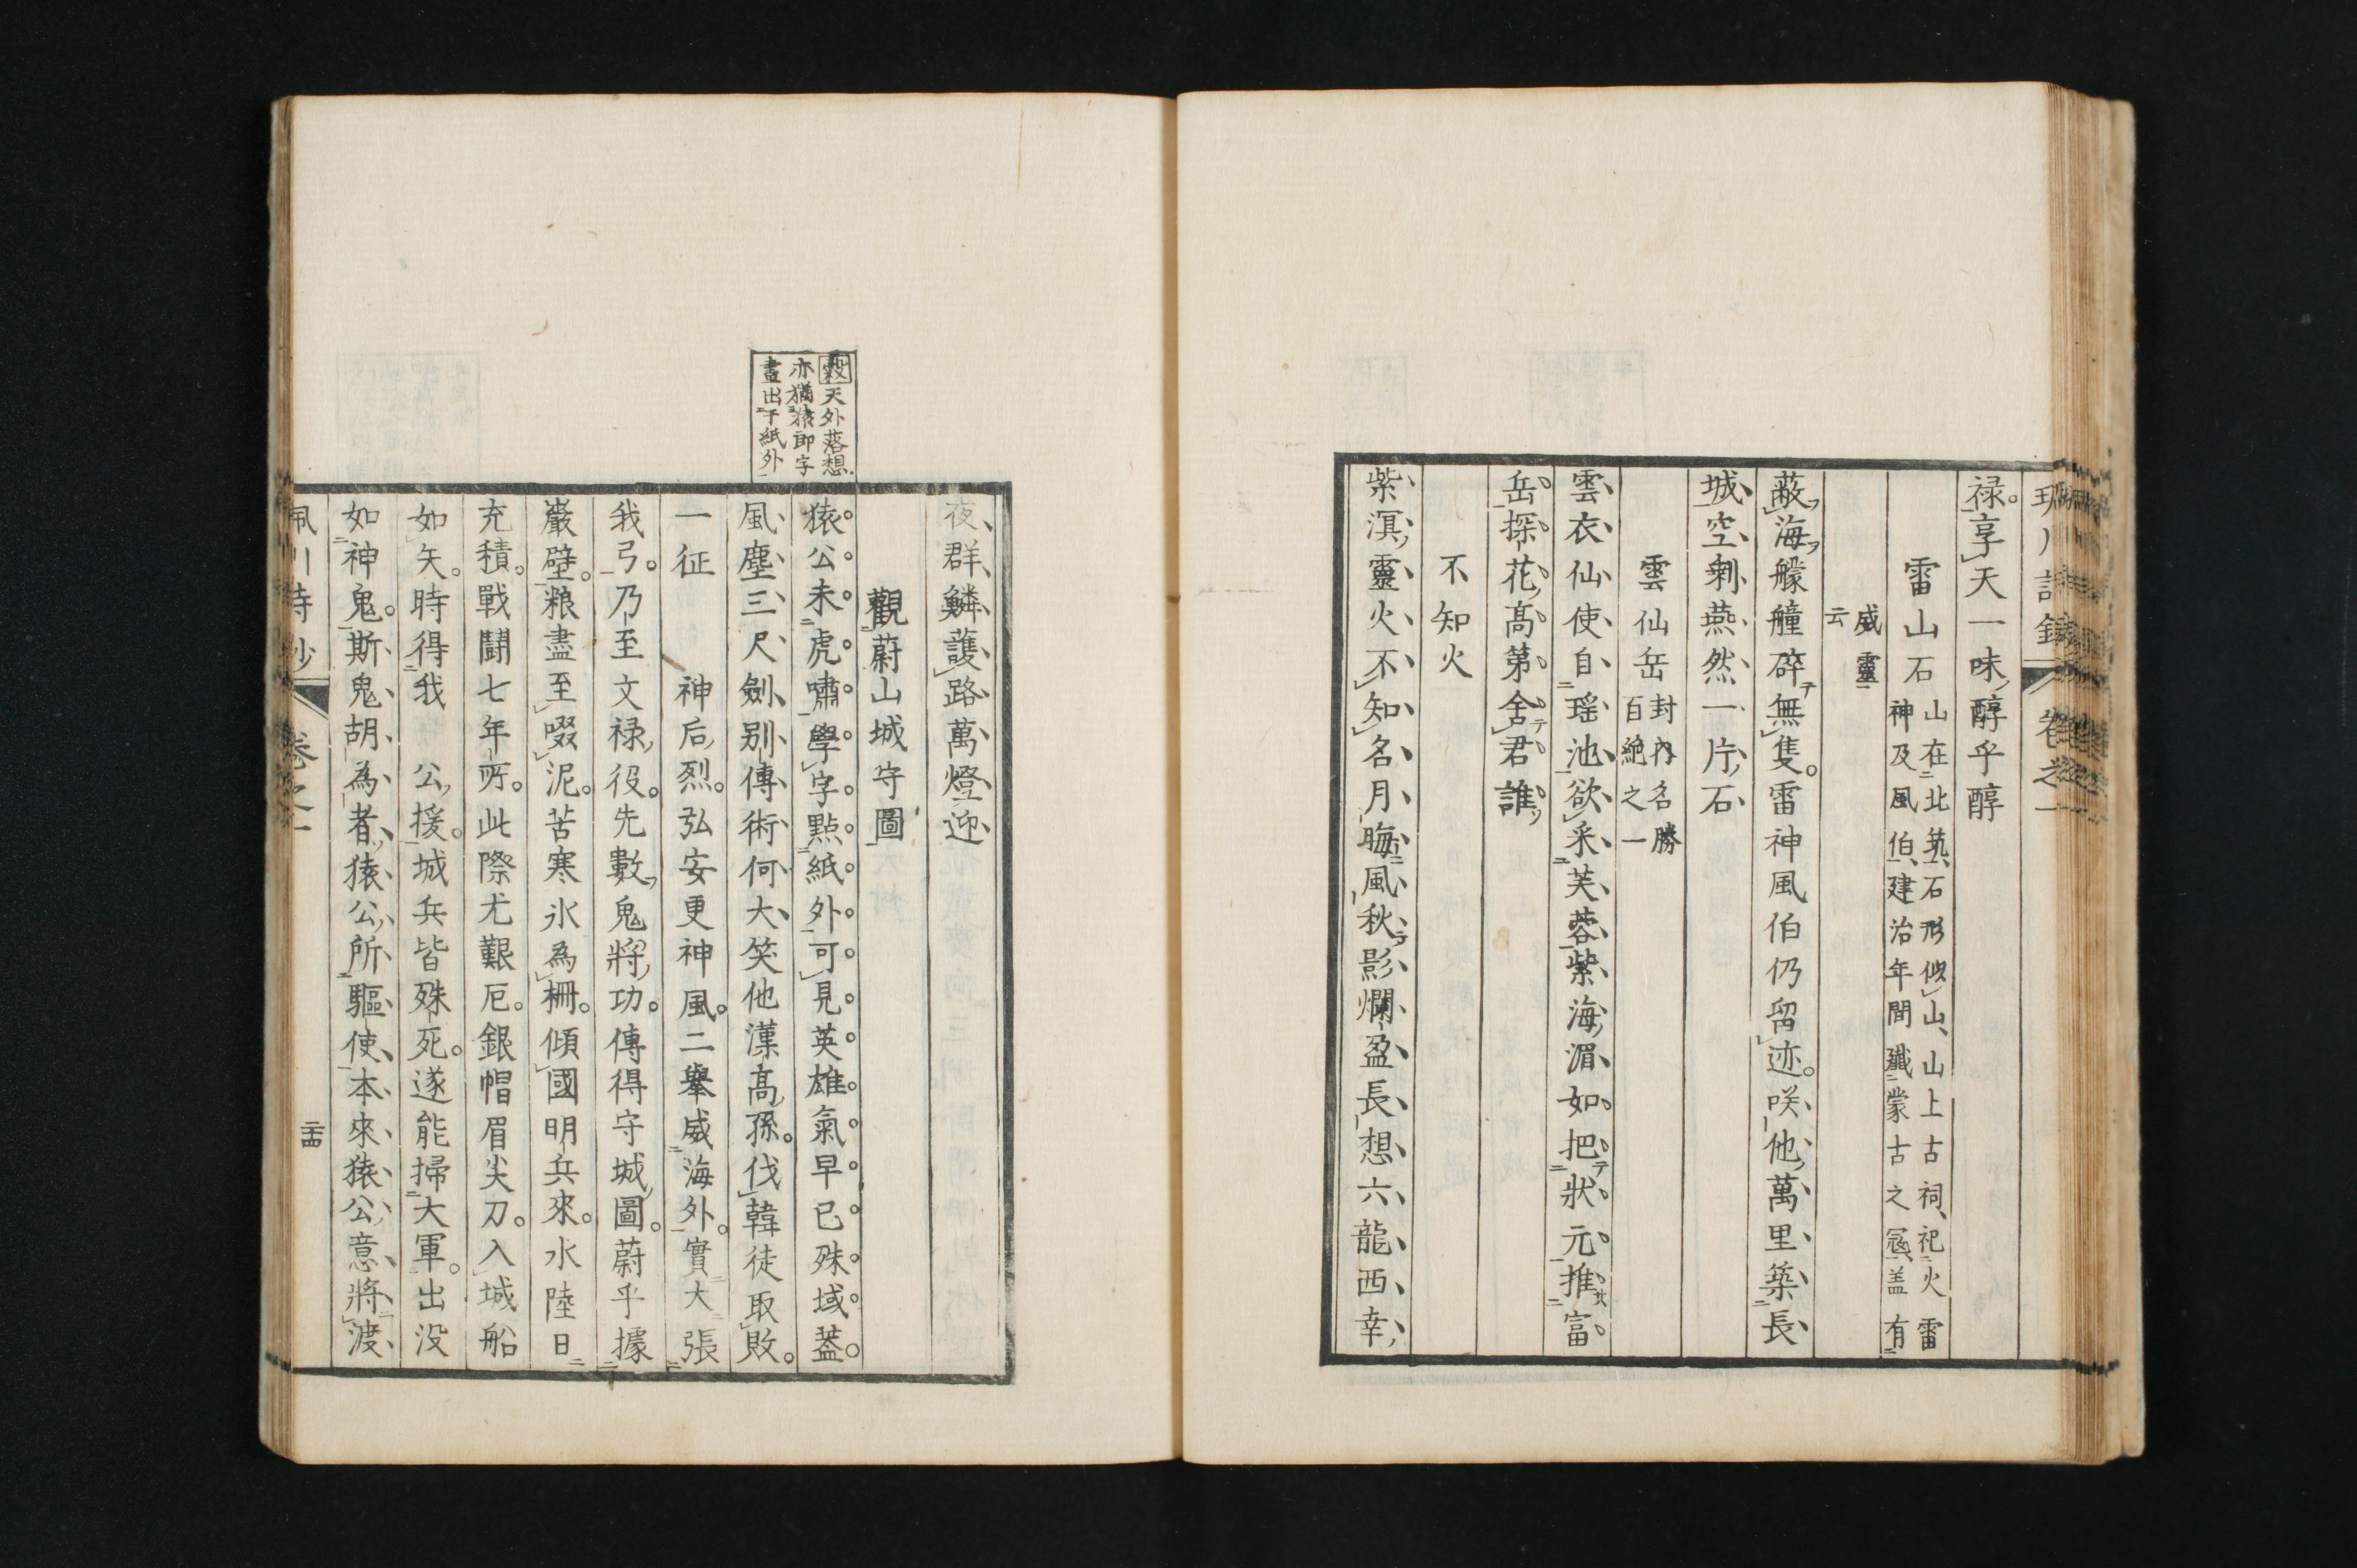 卷之一
禄享天一味醇乎醇
雷山石
山在北筑石形似山山上古祠祀火雷
神及風伯建治年間殲蒙古之寇盖有
威靈
云
蔽海艨艟碎無隻雷神風伯仍留迹咲他萬里築長
城空剩燕然一片石
雲仙岳
封內名勝
百絶之一
雲衣仙使自瑶池欲采芙蓉紫海湄如把狀元推富
岳探花髙第舍君誰
不知火
紫溟靈火不知名月晦風秋影爛盈長想六龍西幸
夜群鱗護路萬燈迎
觀蔚山城守圖
天外落想
亦猶猿郎字
畫出于紙外
猿公未虎嘯學字㸃紙外可見英雄氣早已殊域蓋
風塵三尺劍别傳術何大笑他漢髙孫伐韓徒取敗
一征 神后烈弘安更神風二舉威海外實大張
我弓乃至文禄役先數鬼將功傳得守城圖蔚乎據
巖壁粮盡至啜泥苦寒氷為柵傾國明兵來水陸日
充積戰鬪七年所此際尤艱厄銀帽眉尖刀入城船
如矢時得我 公援城兵皆殊死遂能掃大軍出没
如神鬼斯鬼胡為者猿公所驅使本來猿公意將渡
卷之一
二十四